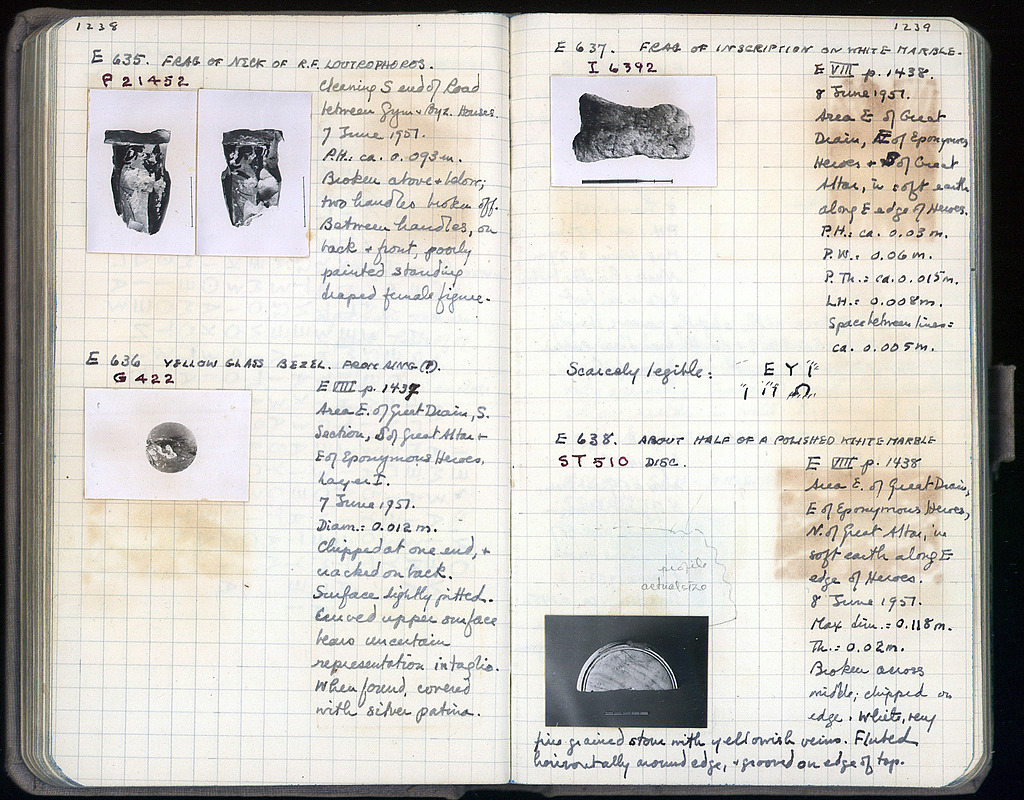 1238
E 635. FRAG OF NECK OF R.F. LOUTROPHOROS.
P 21452
Cleaning S end of Road
between Gym + Byz. Houses.
7 June 1951.
P.H.: ca. 0.093 m.
Broken above + below;
two handles broken off.
Between handles, on
back + front, poorly
painted standing
draped female figure.
E 636 YELLOW GLASS BEZEL. FROM RING (?).
G 422
E VIII p. 1437
Area E. of Great Drain, S.
Section, S of Great Altar +
E of Eponymous Heroes,
Layer I.
7 June 1951.
Diam.: 0.012 m.
Chipped at one end, +
cracked on back.
Surface lightly pitted.
Curved upper surface
bears uncertain
representation intaglio.
When found, covered
with silver patina.
1239
E 637. FRAG OF INSCRIPTION ON WHITE MARBLE.
I 6392
E VIII p. 1438.
8 June 1951.
Area E of Great
Drain, E of Eponymous
Heroes + S of Great
Altar, in soft earth
along E edge of Heroes.
P.H.: ca. 0.03 m.
P.W.: 0.06 m.
P.Th.: ca. 0.015 m.
LH.: 0.008 m.
Space between lines:
ca. 0.005 m.
Scarcely legible: E Y
E 638. ABOUT HALF OF A POLISHED WHITE MARBLE
ST 510 DISC.
E VIII p. 1438
Area E. of Great Drain,
E of Eponymous Heroes,
N. of Great Altar, in
soft earth along E
edge of Heroes.
8 June 1951.
Max dim.: 0.118 m.
Th.: 0.02 m.
Broken across
middle; chipped on
edge. White, very
fine grained stone with yellowish veins. Fluted
horizontally around edge, + grooved on edge of top.
profile
actual size